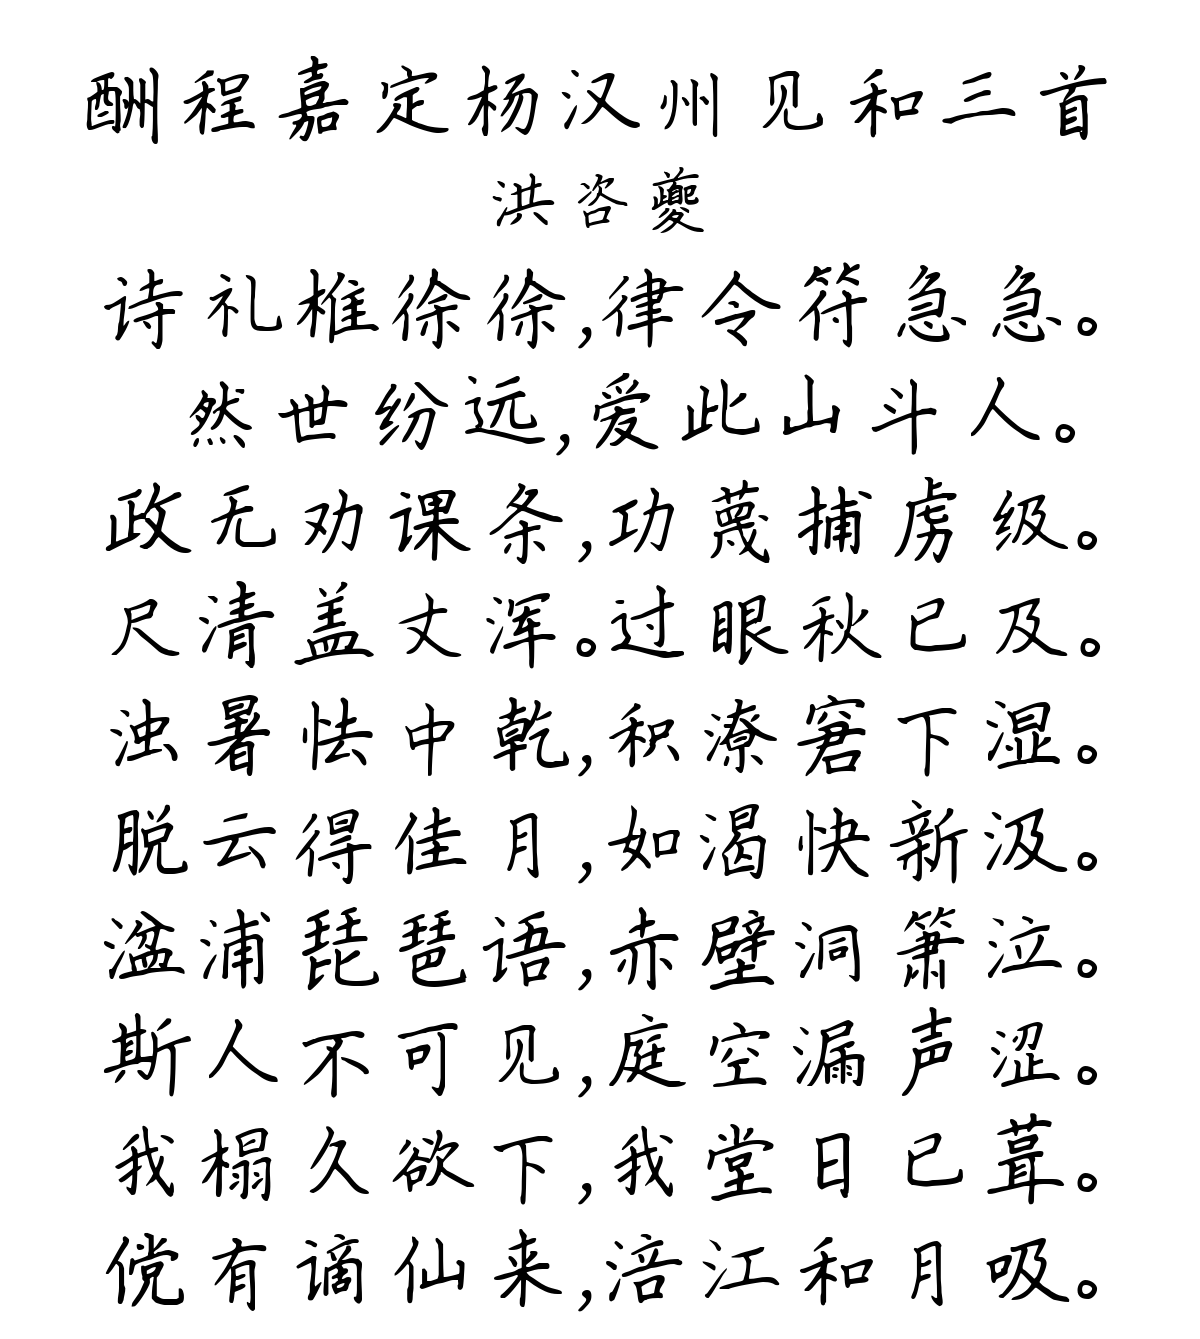 酬程嘉定杨汉州见和三首
洪咨夔
诗礼椎徐徐,律令符急急。
然世纷远,爱此山斗人。
政无劝课条,功蔑捕虏级。
尺清盖丈浑。过眼秋已及。
浊暑怯中乾,积潦窘下湿。
脱云得佳月,如渴快新汲。
湓浦琵琶语,赤壁洞箫泣。
斯人不可见,庭空漏声涩。
我榻久欲下,我堂日已葺。
傥有谪仙来,涪江和月吸。